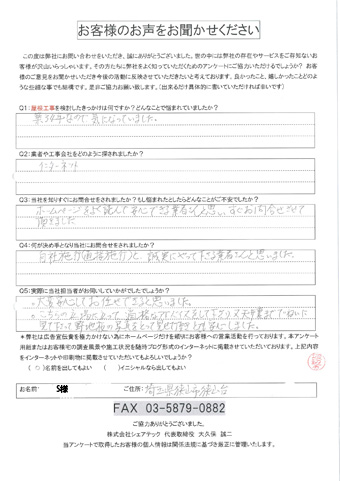 お客様のお声をお聞かせください
この度は弊社にお問い合わせをいただき、誠にありがとうございました。世の中には弊社の存在やサービスをご存知ないお
客様が沢山いらっしゃいます。その方たちに弊社をよく知っていただくためのアンケートにご協力いただけるでしょうか？ お客
様のご意見をお聞かせいただき今後の活動に反映させていただきたいと考えております。良かったこと、嬉しかったことどのよ
うな些細な事でも結構です。是非ご協力お願い致します。（出来るだけ具体的に書いていただければ幸いです）
Q1：屋根工事を検討したきっかけは何ですか？どんなことで悩まれていましたか？
気になっていました。
Q2：業者や工事会社をどのように探されましたか？
インターネット
Q3：当社を知りすぐにお問合せをされましたか？もし悩まれたとしたらどんなことがご不安でしたか？
ホームページをよく読んで安心できる業者さんと思い、すぐお問合せさせて
頂きました
Q4：何が決め手となり当社にお問合せをされましたか？
自社施工直接施工と、誠実にやって下さる業者さんと思いました。
Q5：実際に当社担当者がお伺いしていかがでしたでしょうか？
大変安心してお任せできると思いました。
こちらの立場にたって
見て下さって野地板の写真をとって見せて頂き
＊弊社は広告宣伝費を極力かけない為にホームページだけを頼りにお客様への営業活動を行っております。本アンケート
用紙またはお客様宅の調査風景や施工状況を随時ブログ形式のインターネットに掲載させていただいております。上記内容
をインターネットや印刷物に掲載させていただいてもよろしいでしょうか？
（ ○ ）名前を出してもよい （ ）イニシャルなら出してもよい
お名前： S様 ご住所： 埼玉県狭山市狭山台
FAX 03-5879-0882
ご協力ありがとうございました。
株式会社シェアテック 代表取締役 大久保 誠二
当アンケートで取得したお客様の個人情報は関係法規に基づき厳正に管理いたします。